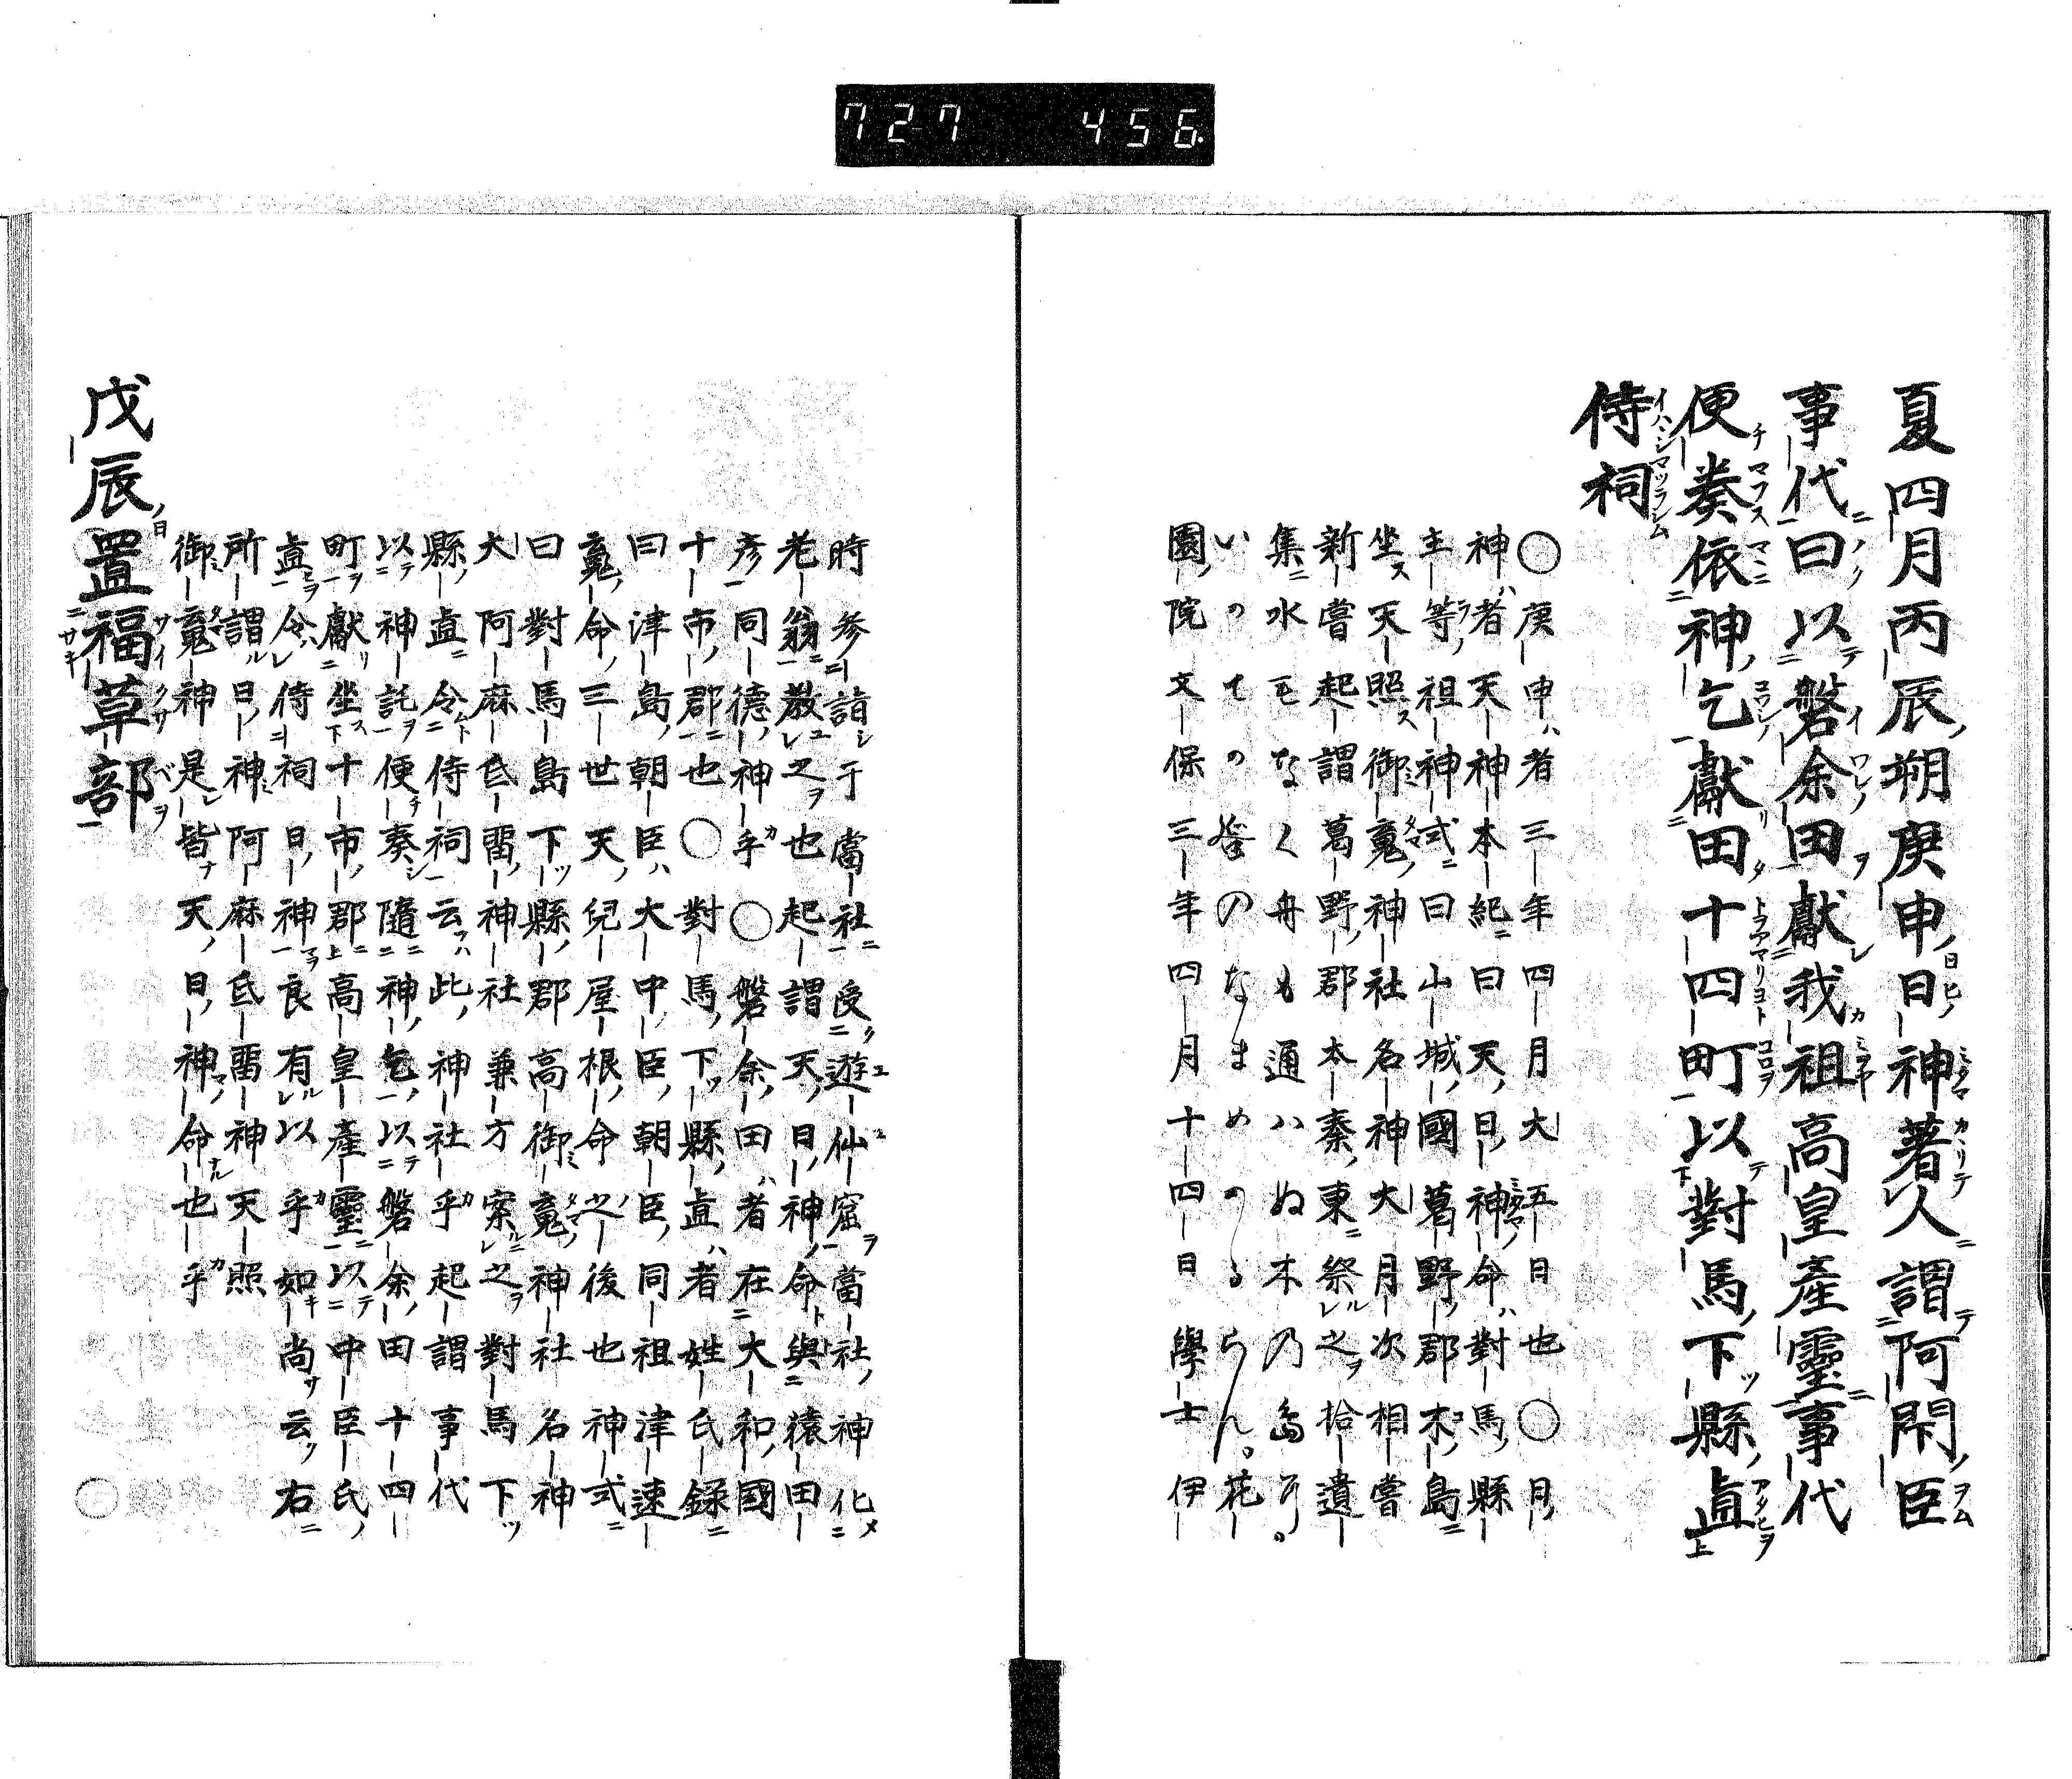 727 456
夏四月丙辰朔庚申日神著人謂阿閇臣
事代曰以磐余田獻我祖高皇產靈事代
便奏依神乞獻田十四町以對馬下縣直
侍祠
〇庚申者三年四月大五日也〇月
神者天神本紀曰天日神命對馬縣
主等祖神式曰山城國葛野郡木島
坐天照御䰠神社名神大月次相嘗
新嘗起謂葛野郡本秦東祭之拾遺
集水もなく舟も通ハぬ木乃島
花
園院文保三年四月十四日學士伊
時參詣于當社受遊仙窟當社神化
老翁教之也起謂天日神命與猿田
彥同德神乎〇磐余田者在大和國
十市郡也〇對馬下縣直者姓氏錄
曰津島朝臣大中臣朝臣同祖津速
䰠命三世天兒屋根命之後也神式
曰對馬島下縣郡高御䰠神社名神
大阿麻氐留神社兼方案之對馬下
縣直令侍祠云此神社乎起謂事代
以神託便奏隨神乞以磐余田十四
町獻坐十市郡高皇產靈以中臣氏
直令侍祠日神良有以乎如尚云右
所謂日神阿麻氐留神天照
御䰠神是皆天日神命也乎
戊辰置福草部